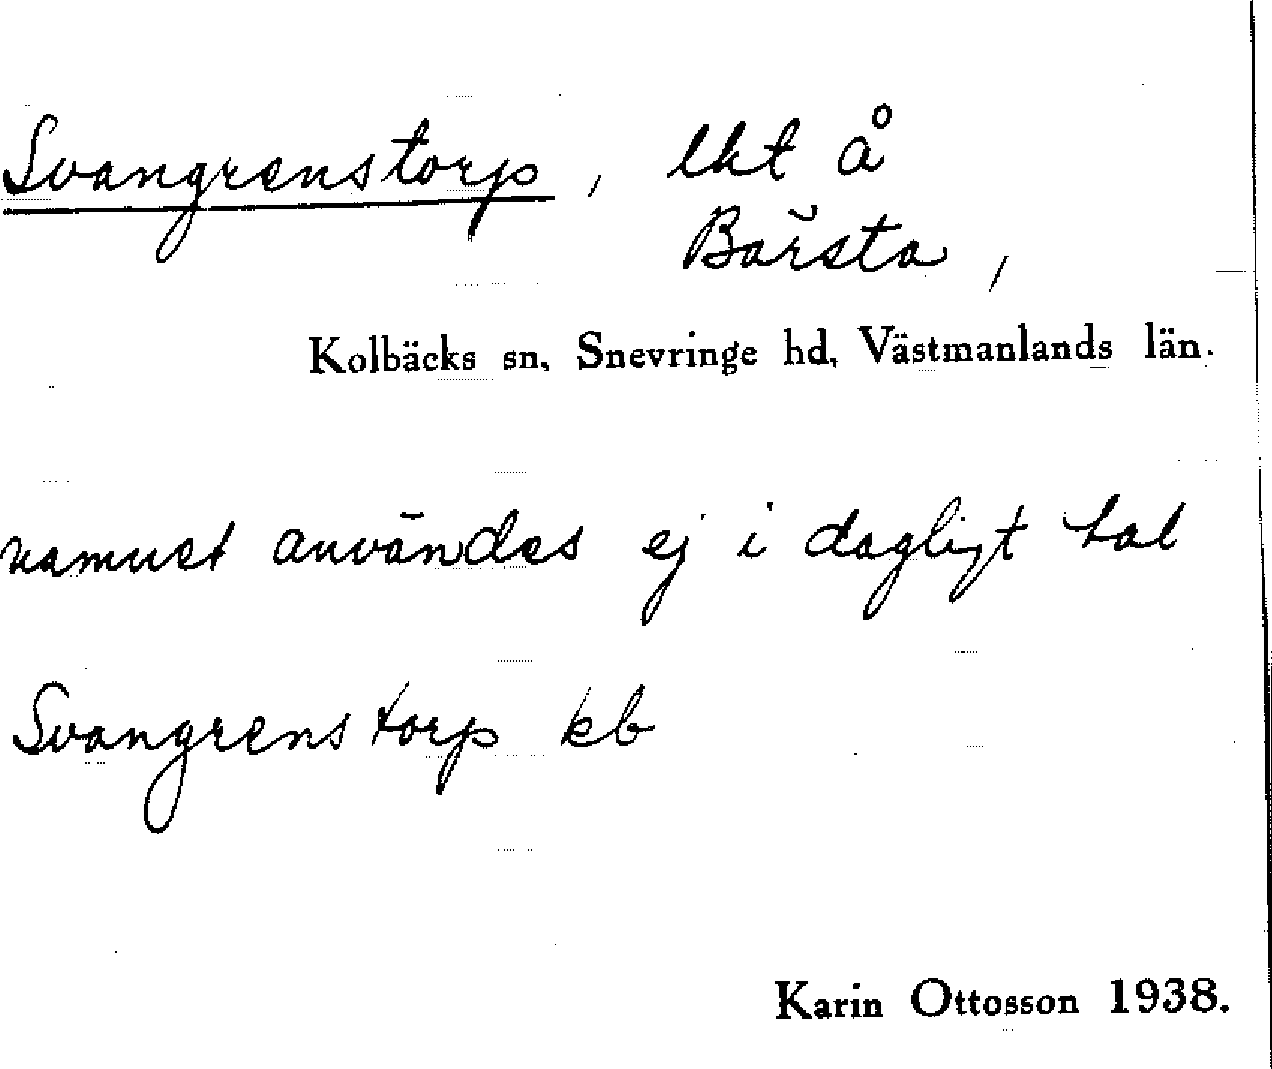 Svangrenstorp, lht å
Bärsta,
Kolbäcks sn, Snevringe hd, Västmanlands län.
namnet användes ej i dagligt tal
Svangrenstorp kb
Karin Ottosson 1938.